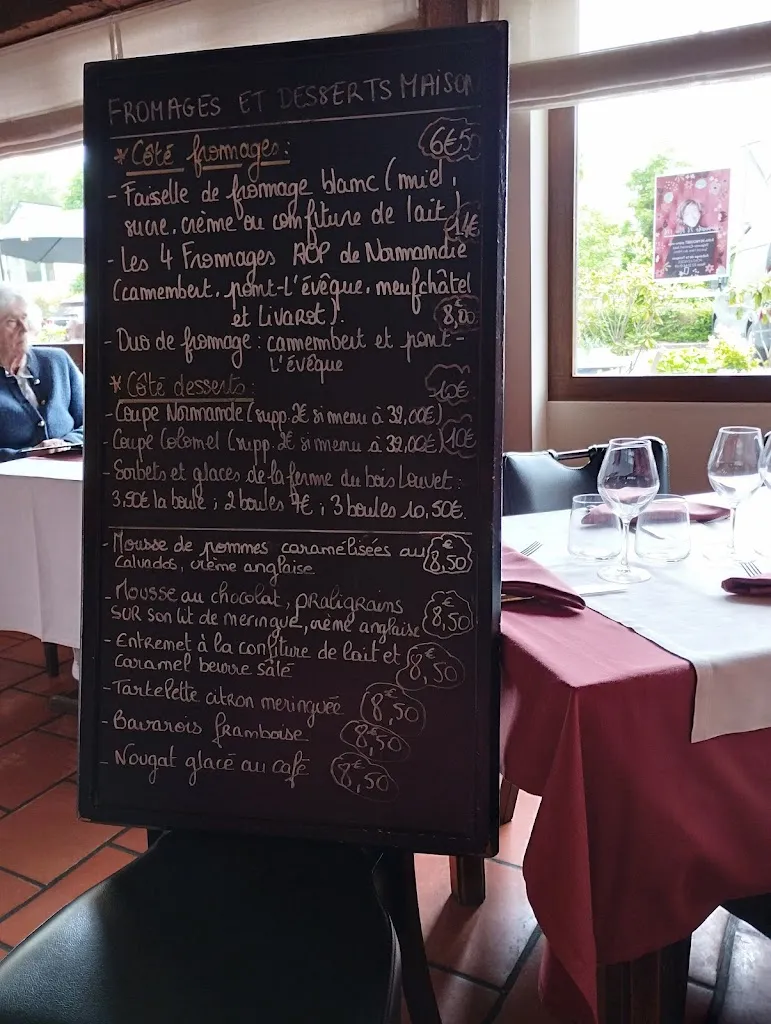 FROMAGES ET DESSERTS MAISON
* Côté fromages : 6€50
- Faisselle de fromage blanc (miel,
sucre, crème ou confiture de lait) 14€
- Les 4 Fromages AOP de Normandie
(camembert, pont-l'évêque, neufchâtel
et Livarot). 8,00
- Duo de fromage : camembert et pont-
l'évêque
* Côté desserts : 10€
- Coupe Normande (supp. 2€ si menu à 32,00€)
- Coupe Colonel (supp. 2€ si menu à 32,00€) 10€
- Sorbets et glaces de la ferme du bois Louvet :
3,50€ la boule ; 2 boules 7€ ; 3 boules 10,50€.
- Mousse de pommes caramélisées au 8,50€
calvados, crème anglaise
- Mousse au chocolat, praligrains
SUR son lit de meringue, crème anglaise 8,50€
- Entremet à la confiture de lait et 8,50€
caramel beurre salé
- Tartelette citron meringuée 8,50€
- Bavarois framboise 8,50€
- Nougat glacé au café 8,50€